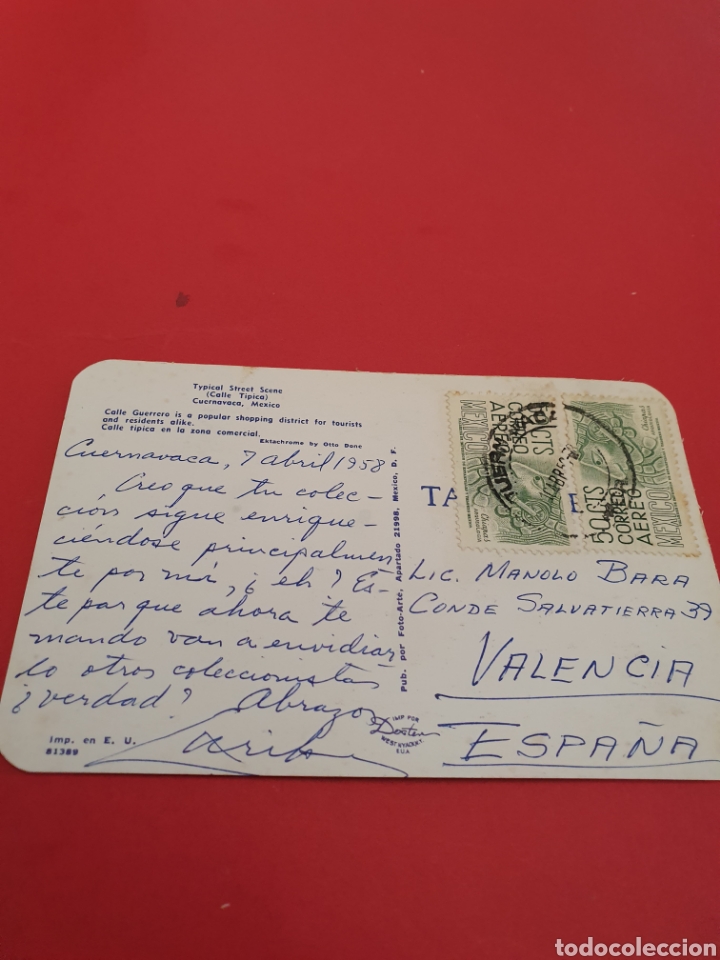 Typical Street Scene
(Calle Tipica)
Cuernavaca, Mexico
Calle Guerrero is a popular shopping district for tourists
and residents alike.
Calle tipica en la zona comercial.
Ektachrome by Otto Done
Cuernavaca, 7 abril 1958
Creo que tu colec-
ción sigue enrique-
ciéndose principalmen
te por mí, ¿eh? Es-
te par que ahora te
mando van a envidiar
lo otros coleccionistas
¿verdad? Abrazos
Imp. en E. U.
81389
Pub. por Foto-Arte, Apartado 21998, Mexico, D. F.
IMP POR
Dexter
WEST NYACK NY.
E.U.A.
MEXICO
50 CTS
CORREO
AEREO
Chiapas
50 CTS
CORREO
AEREO
MEXICO
Chiapas
TA
E
LIC. MANOLO BARA
CONDE SALVATIERRA 39
VALENCIA
ESPAÑA
todocoleccion